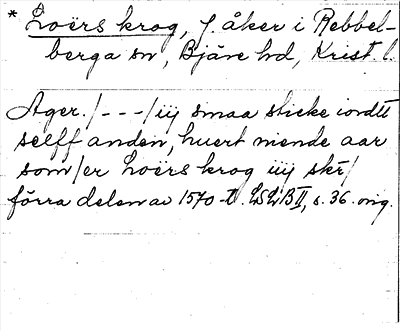 * Loërs krog, f. åker i Rebbel-
berga sn, Bjäre hd, Krist. l.
Ager. /---/ iij smaa sticke iordtt
selff anden, huert niende aar
som/er Loërs krog iiij skr/
förra delen av 1570-t. LSLB II, s. 36. orig.